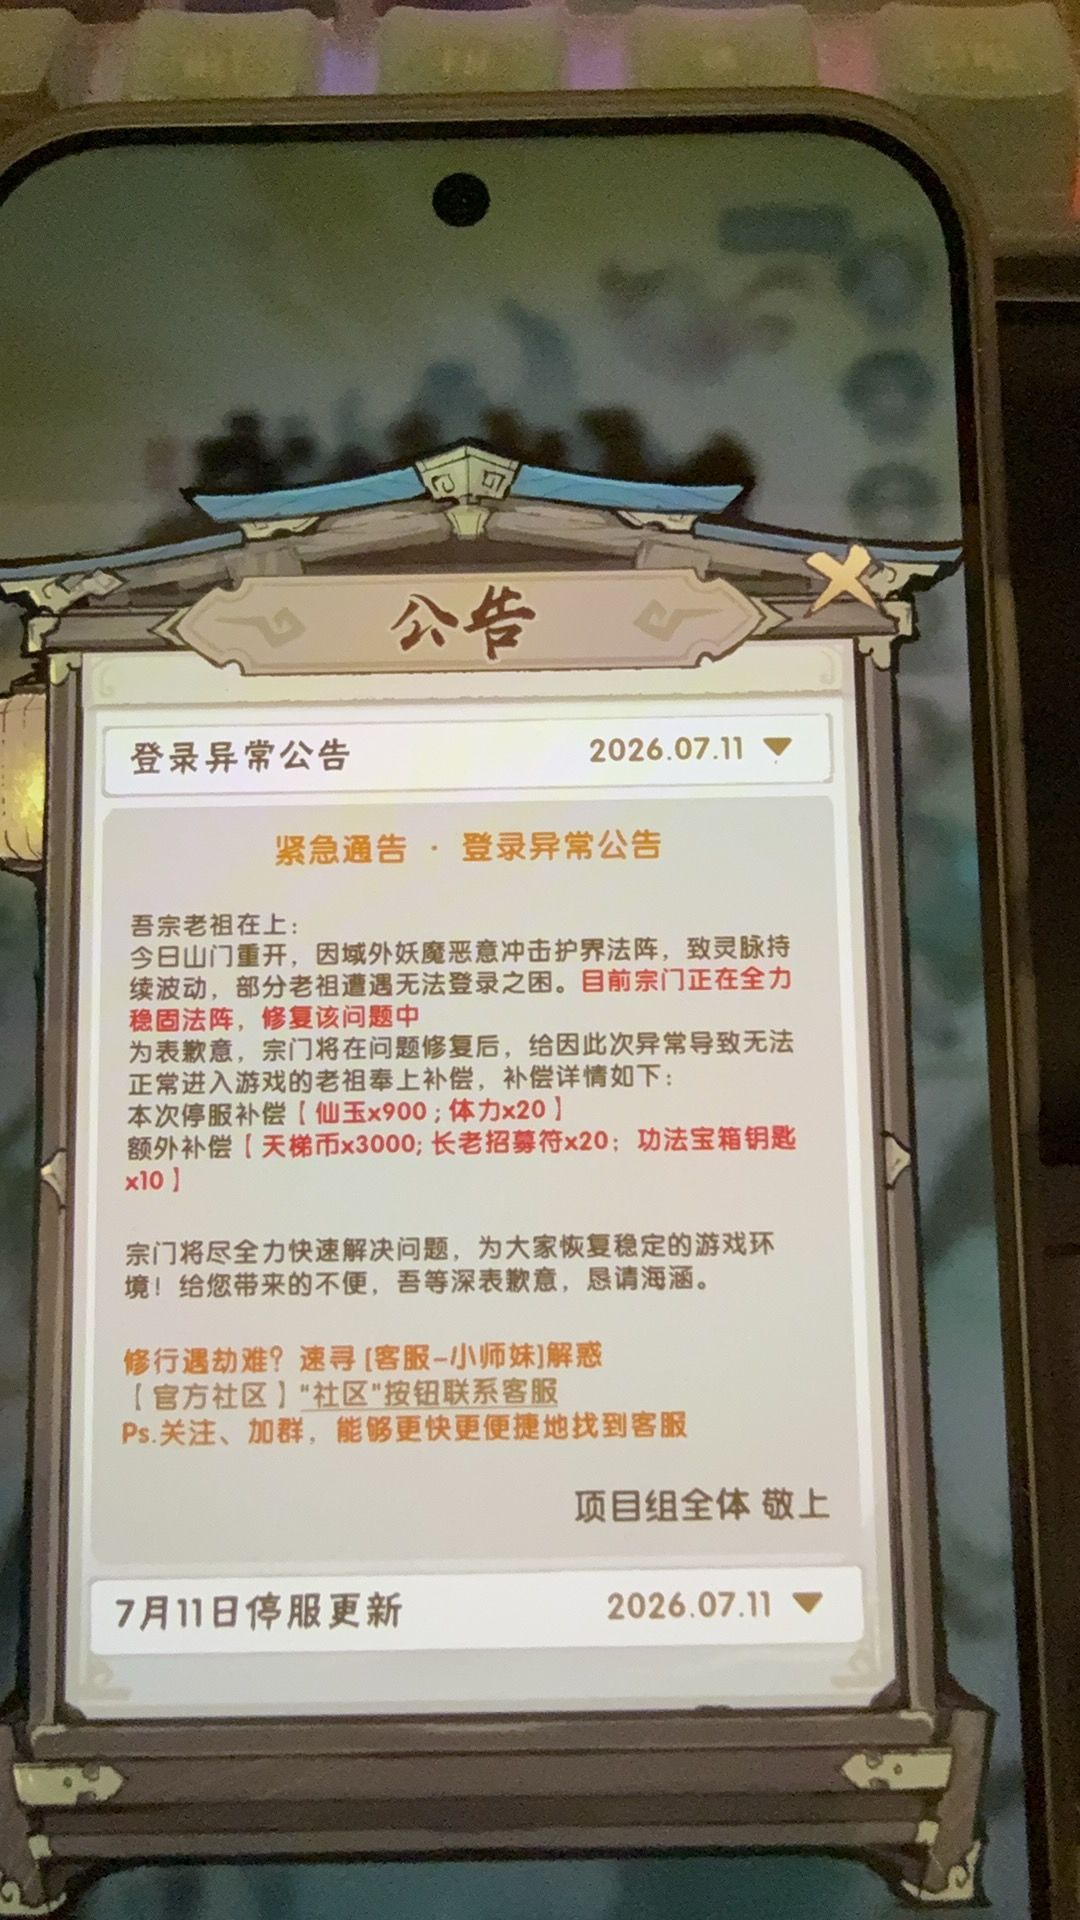 公告
登录异常公告 2026.07.11
紧急通告 · 登录异常公告
吾宗老祖在上：
今日山门重开，因域外妖魔恶意冲击护界法阵，致灵脉持
续波动，部分老祖遭遇无法登录之困。目前宗门正在全力
稳固法阵，修复该问题中
为表歉意，宗门将在问题修复后，给因此次异常导致无法
正常进入游戏的老祖奉上补偿，补偿详情如下：
本次停服补偿【仙玉x900；体力x20】
额外补偿【天梯币x3000; 长老招募符x20；功法宝箱钥匙
x10】
宗门将尽全力快速解决问题，为大家恢复稳定的游戏环
境！给您带来的不便，吾等深表歉意，恳请海涵。
修行遇劫难？速寻 [客服-小师妹]解惑
【官方社区】"社区"按钮联系客服
Ps.关注、加群，能够更快更便捷地找到客服
项目组全体 敬上
7月11日停服更新 2026.07.11